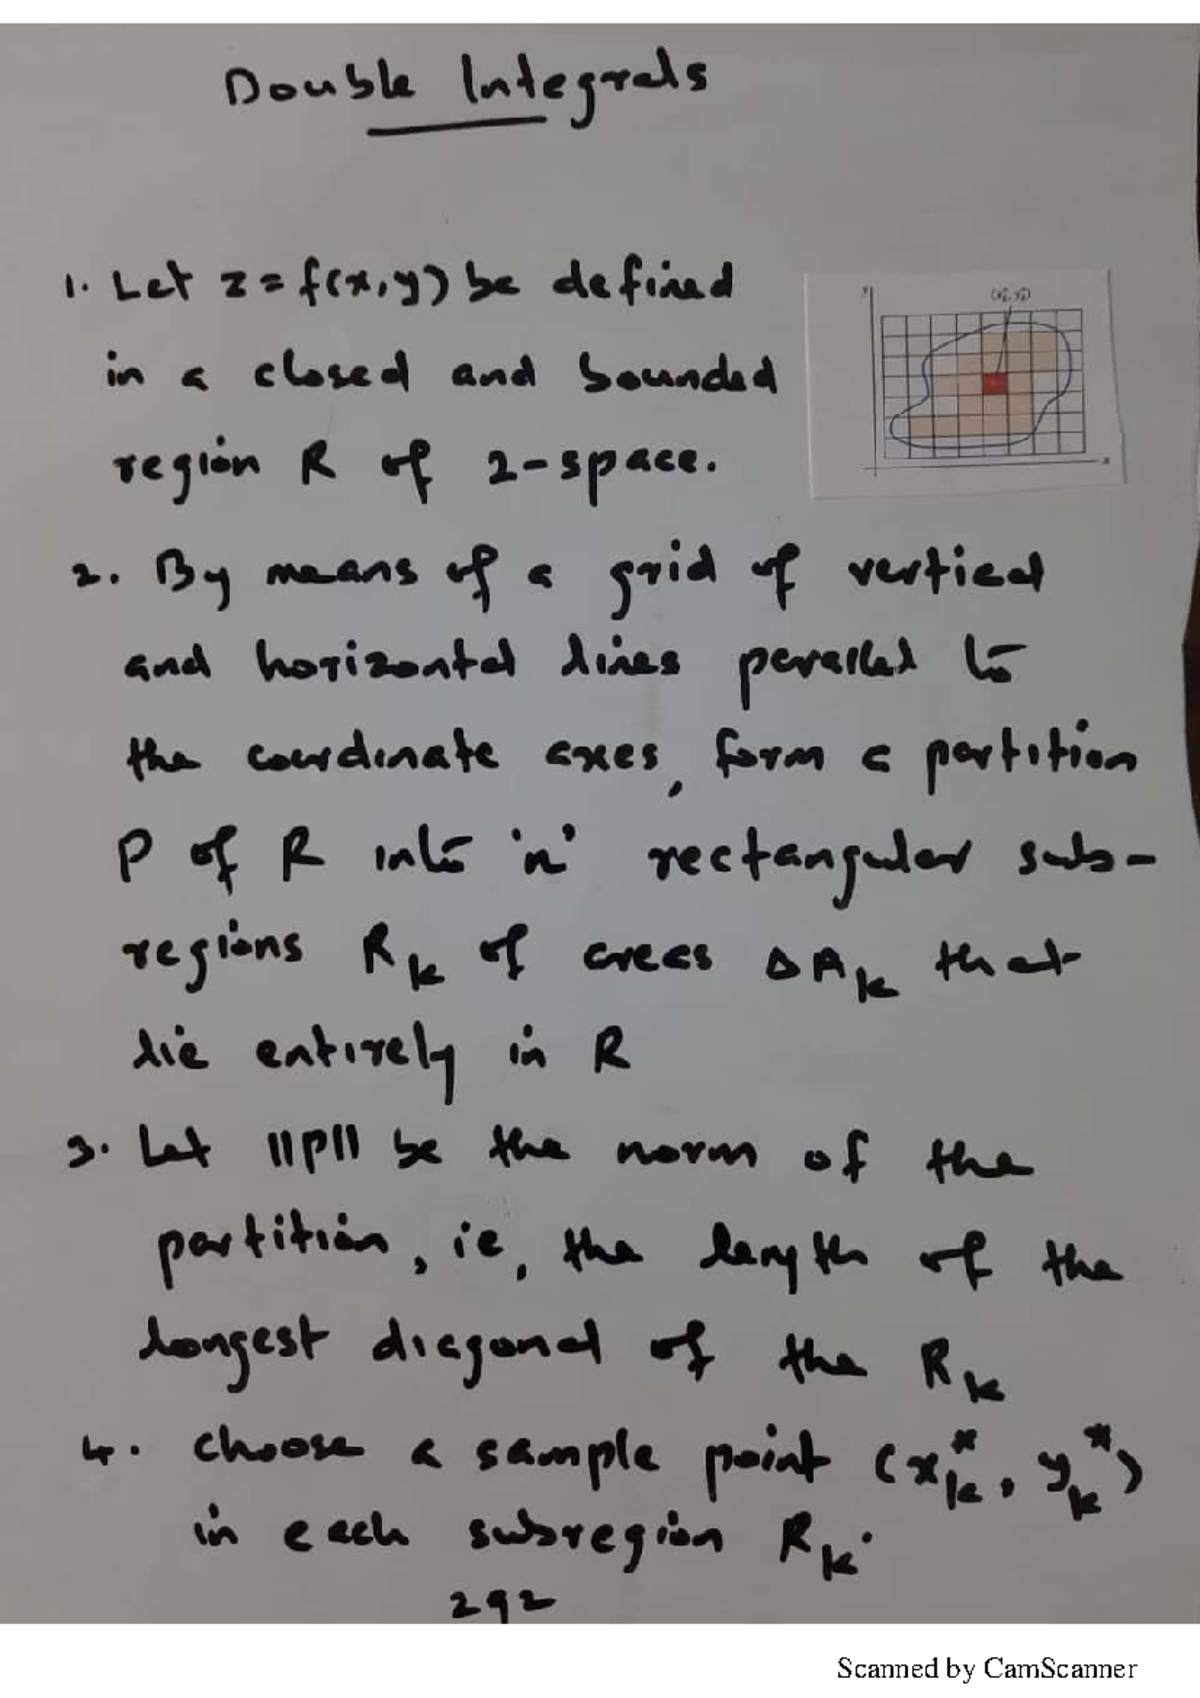 Double Integrals
1. Let z = f(x,y) be defined
in a closed and bounded
region R of 2-space.
y
x
2. By means of a grid of vertical
and horizontal lines parallel to
the coordinate axes, form a partition
P of R into 'n' rectangular sub-
regions Rₖ of areas ΔAₖ that
lie entirely in R
3. Let ||P|| be the norm of the
partition, ie, the length of the
longest diagonal of the Rₖ
4. choose a sample point (xₖ*, yₖ*)
in each subregion Rₖ.
292
Scanned by CamScanner